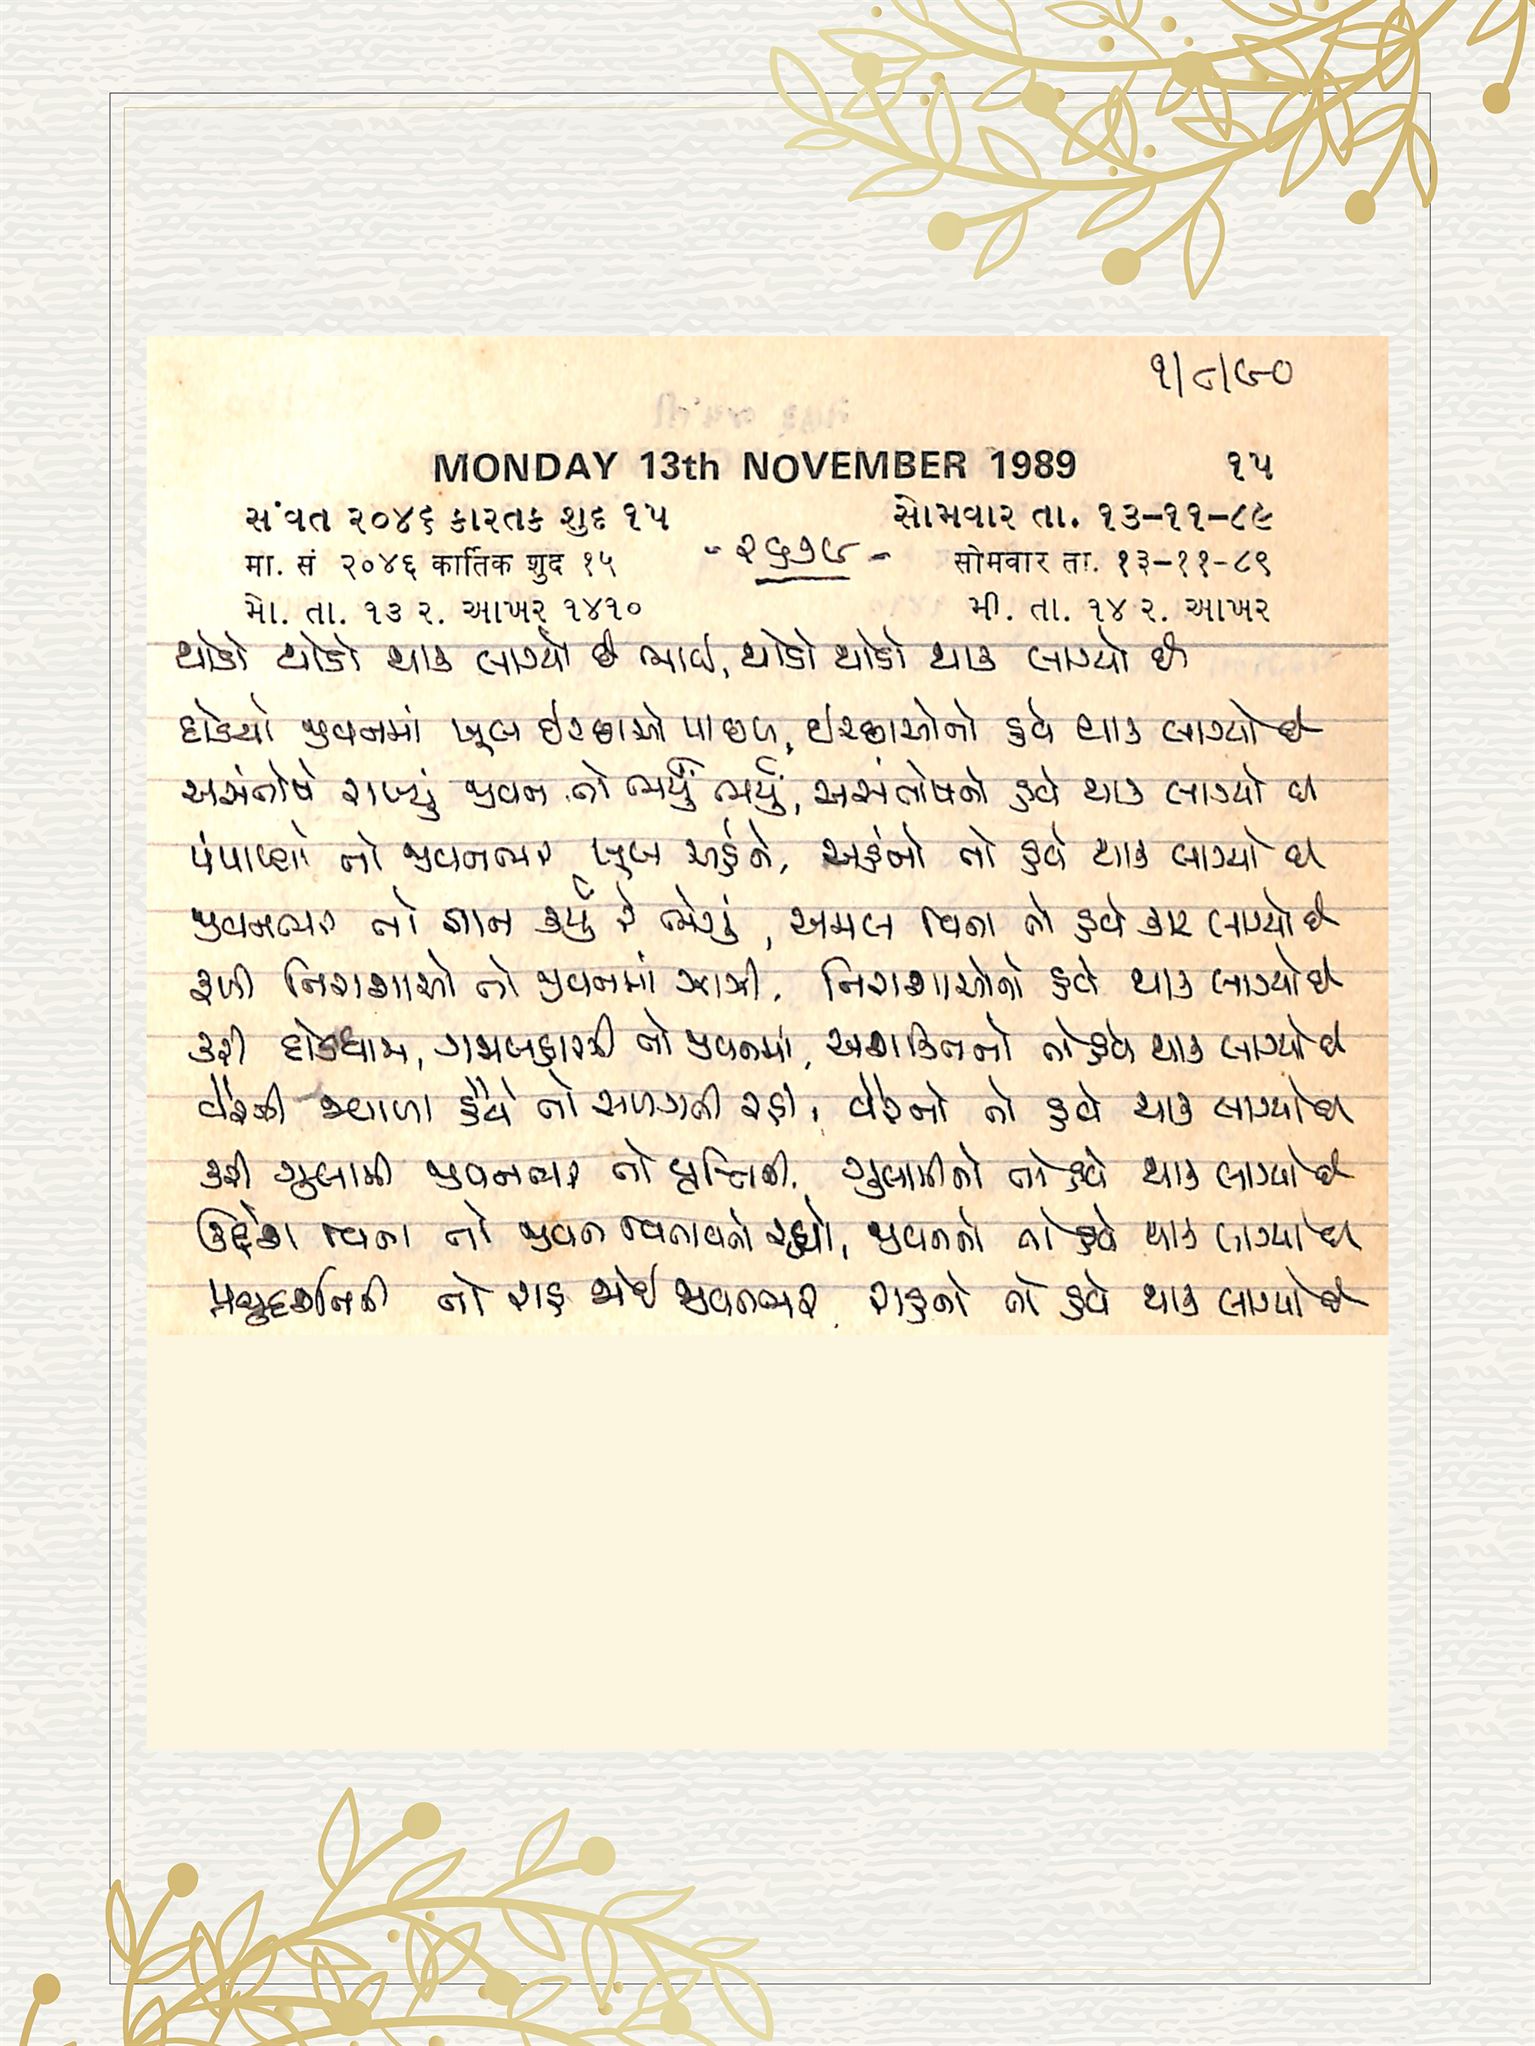 ૧/૮/૯૦
MONDAY 13th NOVEMBER 1989 ૧૫
સંવત ૨૦૪૬ કારતક શુદ ૧૫ સોમવાર તા. ૧૩-૧૧-૮૯
मा. सं २०४६ कार्तिक शुद १५ - ૨૬૭૯ - सोमवार ता. १३-११-८९
મો. તા. ૧૩ ર. આખર ૧૪૧૦ મી. તા. ૧૪ ર. આખર
થોડો થોડો થાક લાગ્યો છે ભાઈ, થોડો થોડો થાક લાગ્યો છે
દોડયો જીવનમાં ખૂબ ઇચ્છાઓ પાછળ, ઇચ્છાઓનો હવે થાક લાગ્યો છે
અસંતોષે રાખ્યું જીવન તો ભર્યું ભર્યું, અસંતોષનો હવે થાક લાગ્યો છે
પંપાળ્યો તો જીવનભર ખૂબ અહંને, અહંનો તો હવે થાક લાગ્યો છે
જીવનભર તો જ્ઞાન કર્યું રે ભેગું, અમલ વિના તો હવે ભાર લાગ્યો છે
મળી નિરાશાઓ તો જીવનમાં ઝાઝી, નિરાશાઓનો હવે થાક લાગ્યો છે
કરી દોડધામ, ગજબકારી તો જીવનમાં, અશક્તિનો તો હવે થાક લાગ્યો છે
વૈરની જ્વાળા હૈયે તો સળગતી રહી, વૈરનો તો હવે થાક લાગ્યો છે
કરી ગુલામી જીવનભર તો વૃત્તિની, ગુલામીનો તો હવે થાક લાગ્યો છે
ઉદ્દેશ વિના તો જીવન વિતાવતો રહ્યો, જીવનનો તો હવે થાક લાગ્યો છે
પ્રભુદર્શનની તો રાહ જોઈ જીવનભર, રાહનો તો હવે થાક લાગ્યો છે